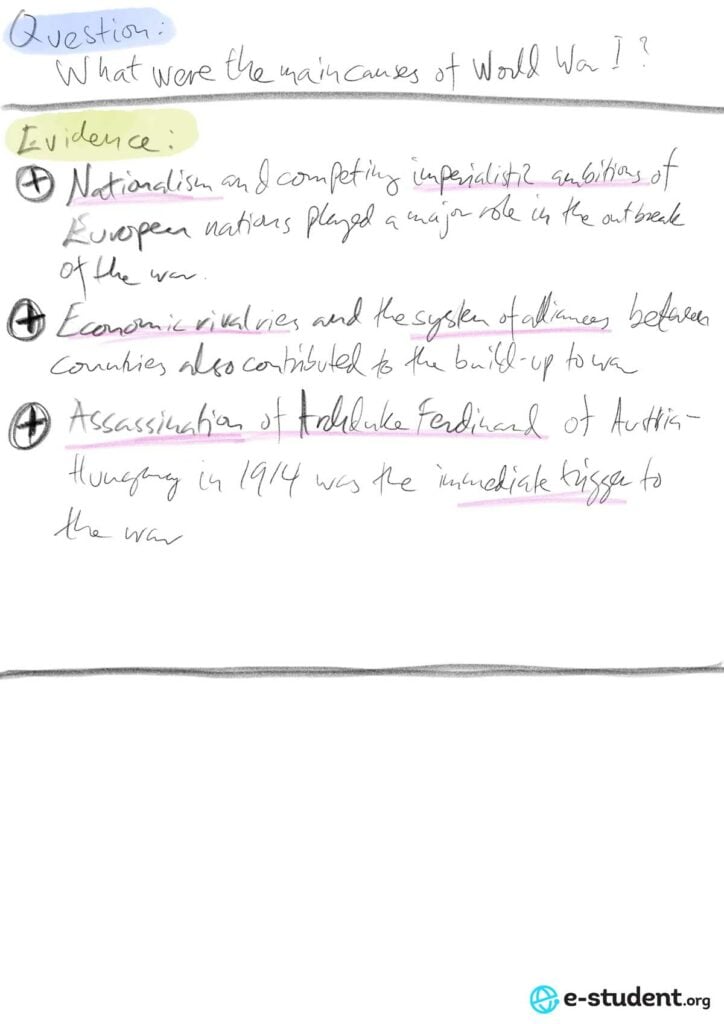 Question:
What were the main causes of World War I?
Evidence:
+ Nationalism and competing imperialistic ambitions of
European nations played a major role in the outbreak
of the war.
+ Economic rivalries and the system of alliances between
countries also contributed to the build-up to war
+ Assassination of Archduke Ferdinand of Austria-
Hungary in 1914 was the immediate trigger to
the war
e-student.org